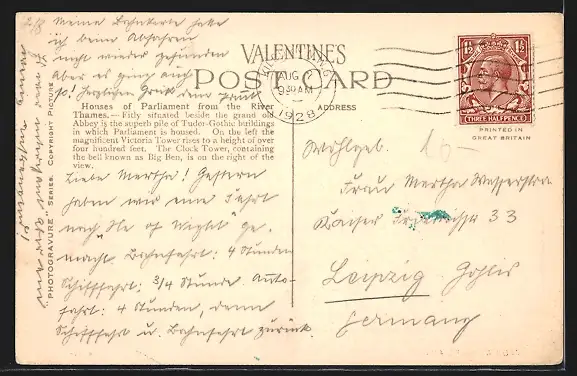 Meine Bahnkarte habe
ich beim Abfahren
nicht wieder gefunden
aber es ging auch
so! Herzlichen Gruß
VALENTINES
POST CARD
AUG
9 30 AM
1928
1½ 1½
THREE HALFPENCE
PRINTED IN
GREAT BRITAIN
ADDRESS
Houses of Parliament from the River
Thames.—Fitly situated beside the grand old
Abbey is the superb pile of Tudor-Gothic buildings
in which Parliament is housed. On the left the
magnificent Victoria Tower rises to a height of over
four hundred feet. The Clock Tower, containing
the bell known as Big Ben, is on the right of the
view.
"PHOTOGRAVURE" SERIES. COPYRIGHT PICTURE
Liebe Martha! Gestern
haben wir eine Fahrt
nach "Isle of Wight" ge-
macht. Bahnfahrt: 4 Stunden
Schifffahrt: 3/4 Stunde. Auto-
fahrt: 4 Stunden, dann
Schifffahrt u. Bahnfahrt zurück.
Wohlgeb.
Frau Martha
Kaiser 33
Leipzig Gohlis
Germany